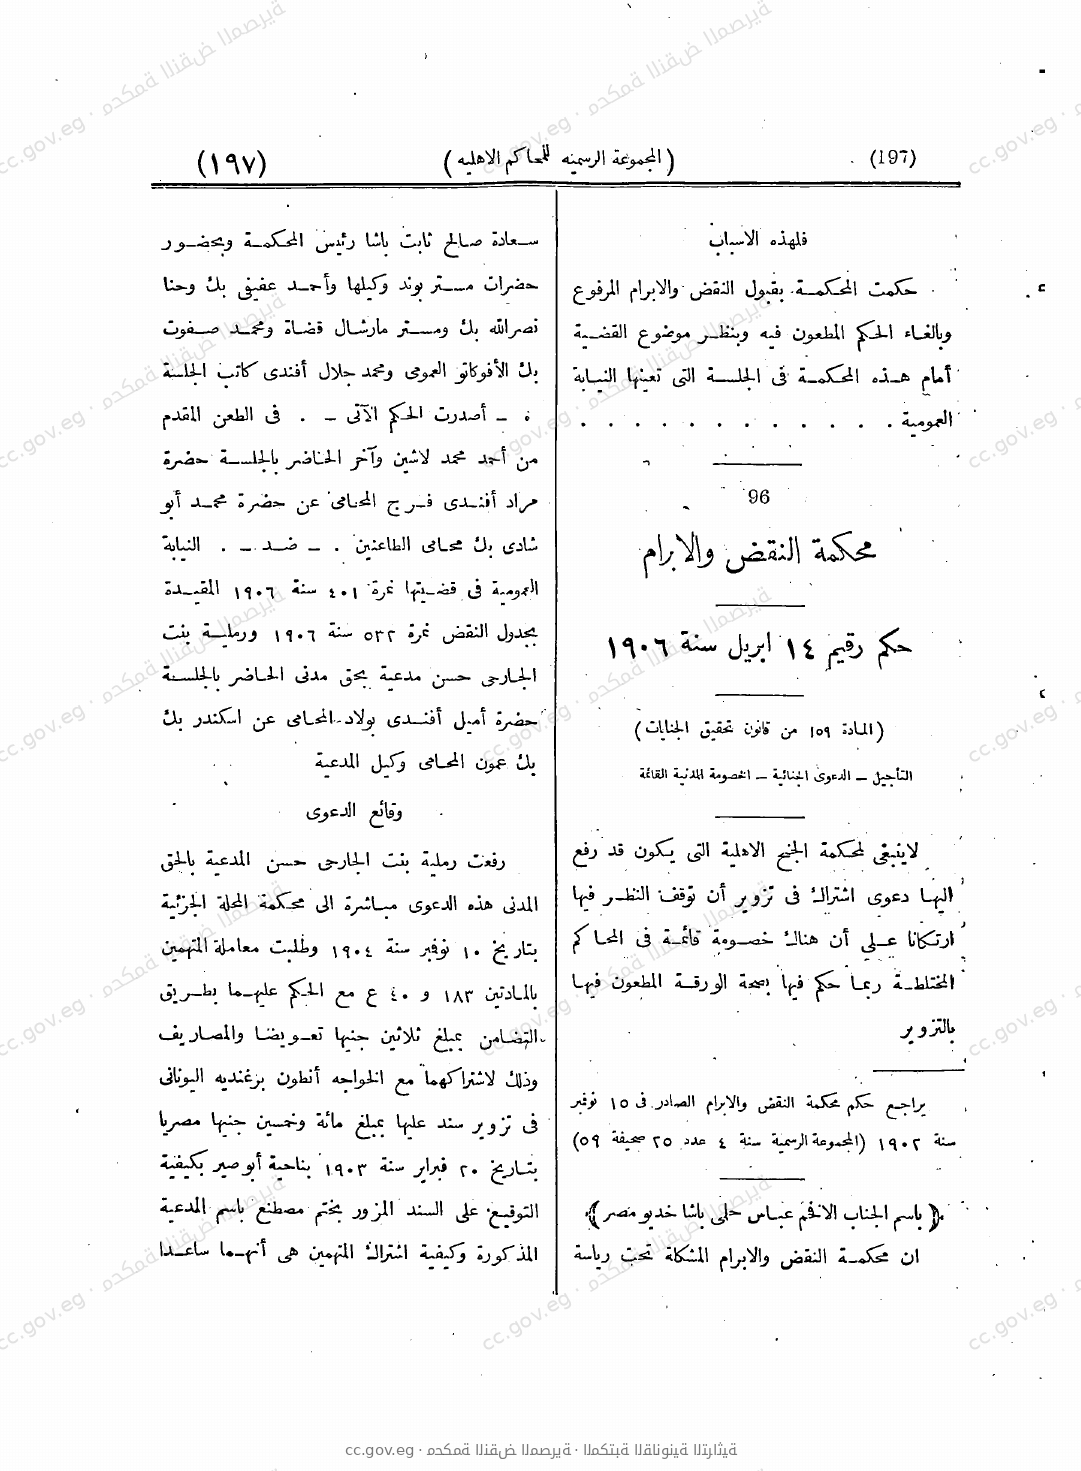 (197)
(المجموعة الرسمية للمحاكم الاهلية)
(١٩٧)
فلهذه الاسباب
حكمت المحكمة بقبول النقض والابرام المرفوع
وبالغاء الحكم المطعون فيه وبنظر موضوع القضية
أمام هذه المحكمة فى الجلسة التى تعينها النيابة
العمومية . . . . . . . . . . . .
96
محكمة النقض والابرام
حكم رقيم ١٤ ابريل سنة ١٩٠٦
(المادة ١٥٩ من قانون تحقيق الجنايات)
التأجيل – الدعوى الجنائية – الخصومة المدنية القائمة
لاينبغى لمحكمة الجنح الاهلية التى يكون قد رفع
اليها دعوى اشتراك فى تزوير أن توقف النظر فيها
ارتكانا على أن هناك خصومة قائمة فى المحاكم
المختلطة ربما حكم فيها بصحة الورقة المطعون فيها
بالتزوير
يراجع حكم محكمة النقض والابرام الصادر فى ١٥ نوفمبر
سنة ١٩٠٢ (المجموعة الرسمية سنة ٤ عدد ٢٥ صحيفة ٥٩)
﴿ باسم الجناب الافخم عباس حلمى باشا خديو مصر ﴾
ان محكمة النقض والابرام المشكلة تحت رياسة
سعادة صالح ثابت باشا رئيس المحكمة وبحضور
حضرات مستر بوند وكيلها وأحمد عفيفى بك وحنا
نصرالله بك ومستر مارشال قضاة ومحمد صفوت
بك الأفوكاتو العمومى ومحمد جلال أفندى كاتب الجلسة
. – أصدرت الحكم الآتى – . فى الطعن المقدم
من أحمد محمد لاشين وآخر الحاضر بالجلسة حضرة
مراد أفندى فرج المحامى عن حضرة محمد أبو
شادى بك محامى الطاعنين . – ضد – . النيابة
العمومية فى قضيتها نمرة ٤٠١ سنة ١٩٠٦ المقيدة
بجدول النقض نمرة ٥٣٢ سنة ١٩٠٦ ورملية بنت
الجارحى حسن مدعية بحق مدنى الحاضر بالجلسة
حضرة أميل أفندى بولاد المحامى عن اسكندر بك
بك عمون المحامى وكيل المدعية
وقائع الدعوى
رفعت رملية بنت الجارحى حسن المدعية بالحق
المدنى هذه الدعوى مباشرة الى محكمة المحلة الجزئية
بتاريخ ١٠ نوفمبر سنة ١٩٠٤ وطلبت معاملة المتهمين
بالمادتين ١٨٣ و ٤٠ ع مع الحكم عليهما بطريق
التضامن بمبلغ ثلاثين جنيها تعويضا والمصاريف
وذلك لاشتراكهما مع الخواجه أنطون برغنديه اليونانى
فى تزوير سند عليها بمبلغ مائة وخمسين جنيها مصريا
بتاريخ ٢٠ فبراير سنة ١٩٠٣ بناحية أبوصير بكيفية
التوقيع على السند المزور بختم مصطنع باسم المدعية
المذكورة وكيفية اشتراك المتهمين هى أنهما ساعدا
cc.gov.eg · محكمة النقض المصرية · المكتبة القانونية التراثية